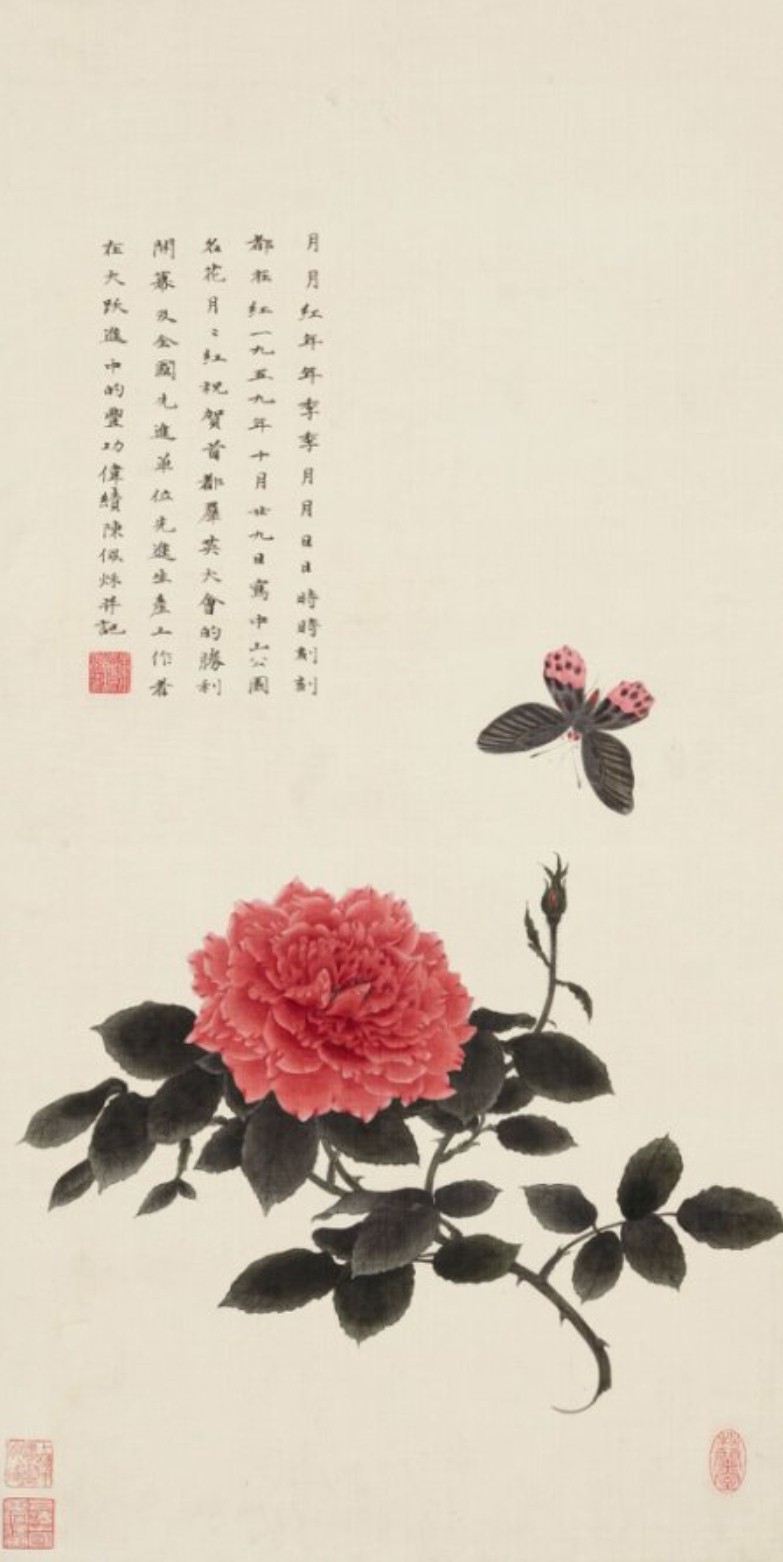 月月紅年年季季月月日日時時刻刻
都在紅一九五九年十月廿九日寫中山公園
名花月〻紅祝賀首都羣英大會的勝利
開幕及全國先進單位先進生產工作者
在大跃進中的豐功偉績陳佩秌并記